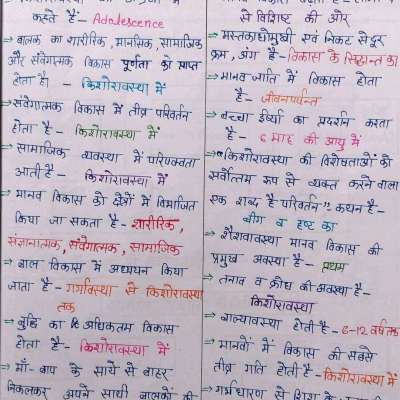 कहते हैं - Adolescence
⇒ बालक का शारीरिक, मानसिक, सामाजिक
और संवेगात्मक विकास पूर्णता को प्राप्त
होता है। - किशोरावस्था में
⇒ संवेगात्मक विकास में तीव्र परिवर्तन
होता है - किशोरावस्था में
⇒ सामाजिक व्यवस्था में परिपक्वता
आती है - किशोरावस्था में
⇒ मानव विकास को क्षेत्रों में विभाजित
किया जा सकता है - शारीरिक,
संज्ञानात्मक, संवेगात्मक, सामाजिक
⇒ बाल विकास में अध्ययन किया
जाता है - गर्भावस्था से किशोरावस्था
तक
⇒ बुद्धि का अधिकतम विकास
होता है - किशोरावस्था में
⇒ माँ-बाप के साये से बाहर
निकलकर अपने साथी बालकों की
से विशिष्ट की ओर
⇒ मस्तकाधोमुखी एवं निकट से दूर
क्रम, अंग है - विकास के सिद्धान्त का
⇒ मानव जाति में विकास होता
है - जीवनपर्यन्त
⇒ बच्चा ईर्ष्या का प्रदर्शन करता
है - 6 माह की आयु में
⇒ "किशोरावस्था की विशेषताओं को
सर्वोत्तम रूप से व्यक्त करने वाला
एक शब्द है परिवर्तन" कथन है -
बीग व हण्ट का
⇒ शैशवावस्था मानव विकास की
प्रमुख अवस्था है - प्रथम
⇒ तनाव व क्रोध की अवस्था है -
किशोरावस्था
⇒ बाल्यावस्था होती है - 6-12 वर्ष तक
⇒ मानवों में विकास की सबसे
तीव्र गति होती है - किशोरावस्था में
⇒ गर्भधारण से शिशु के